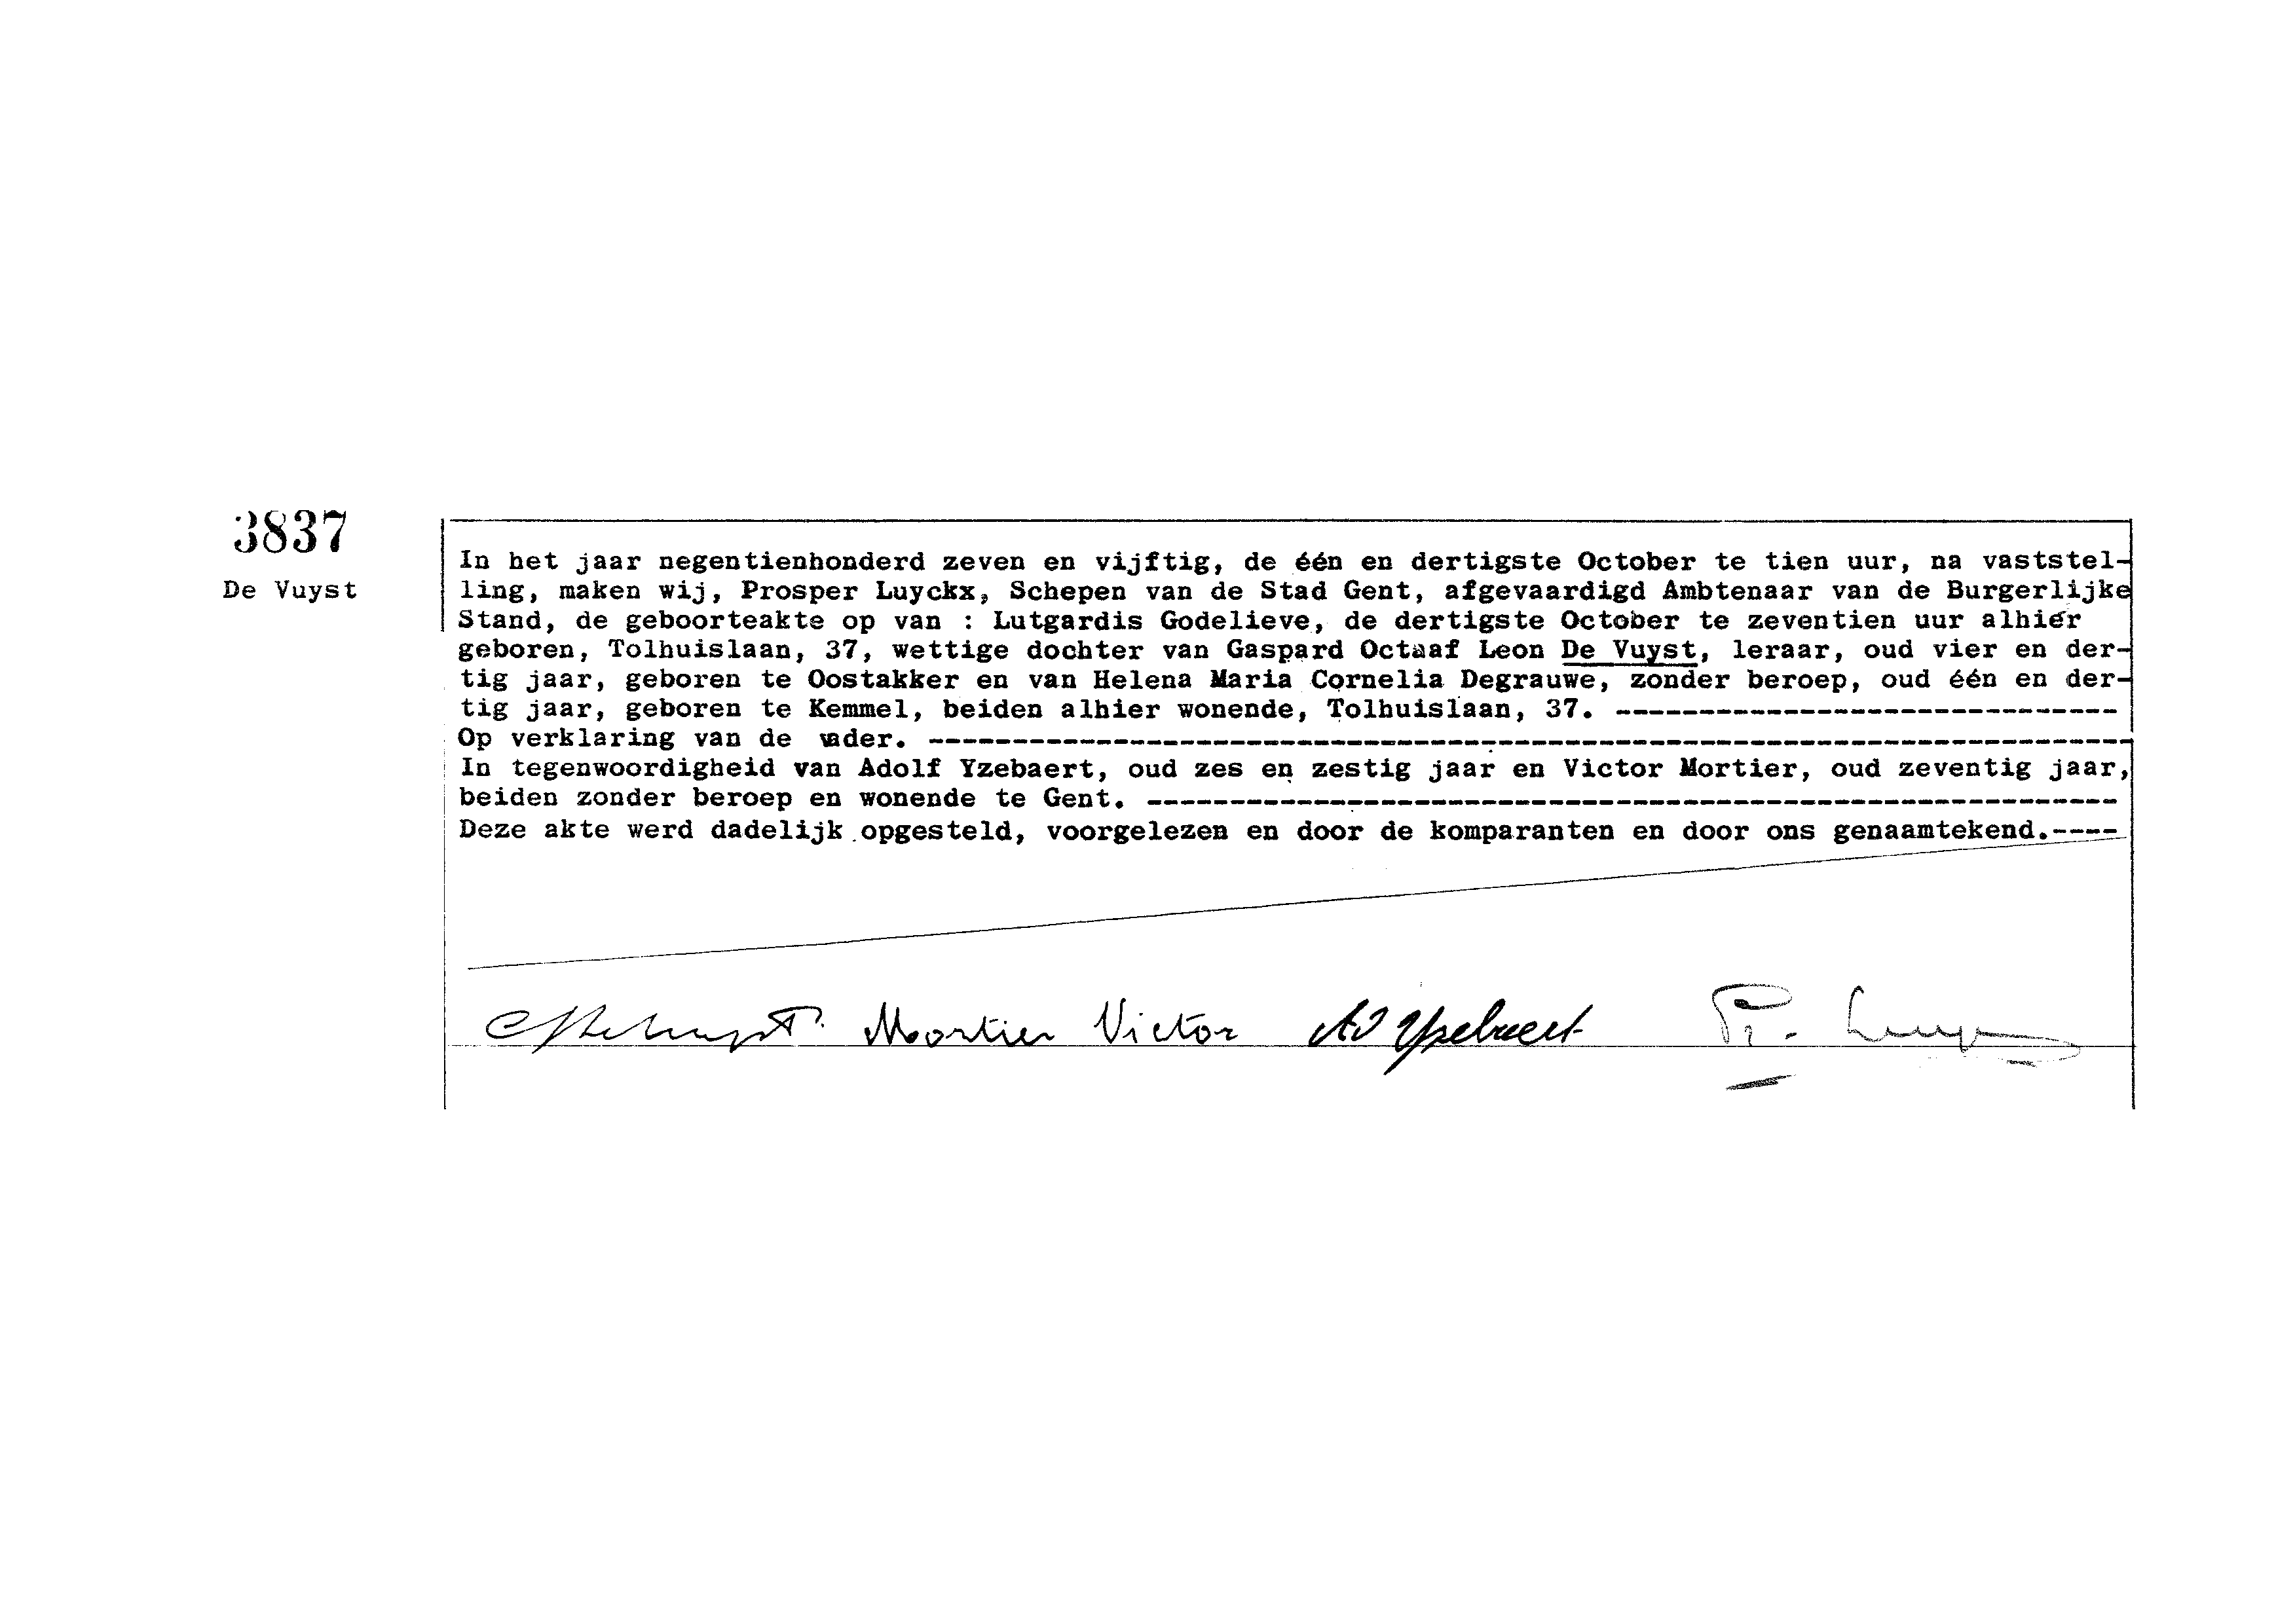 3837
De Vuyst
In het jaar negentienhonderd zeven en vijftig, de één en dertigste October te tien uur, na vaststel-
ling, maken wij, Prosper Luyckx, Schepen van de Stad Gent, afgevaardigd Ambtenaar van de Burgerlijke
Stand, de geboorteakte op van : Lutgardis Godelieve, de dertigste October te zeventien uur alhier
geboren, Tolhuislaan, 37, wettige dochter van Gaspard Octaaf Leon De Vuyst, leraar, oud vier en der-
tig jaar, geboren te Oostakker en van Helena Maria Cornelia Degrauwe, zonder beroep, oud één en der-
tig jaar, geboren te Kemmel, beiden alhier wonende, Tolhuislaan, 37. ------------------------------
Op verklaring van de vader. ------------------------------------------------------------------------
In tegenwoordigheid van Adolf Yzebaert, oud zes en zestig jaar en Victor Mortier, oud zeventig jaar,
beiden zonder beroep en wonende te Gent. ----------------------------------------------------------
Deze akte werd dadelijk opgesteld, voorgelezen en door de komparanten en door ons genaamtekend.----
Mortier Victor Ad Yzebaert